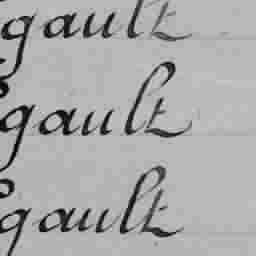 gault
gault
gault